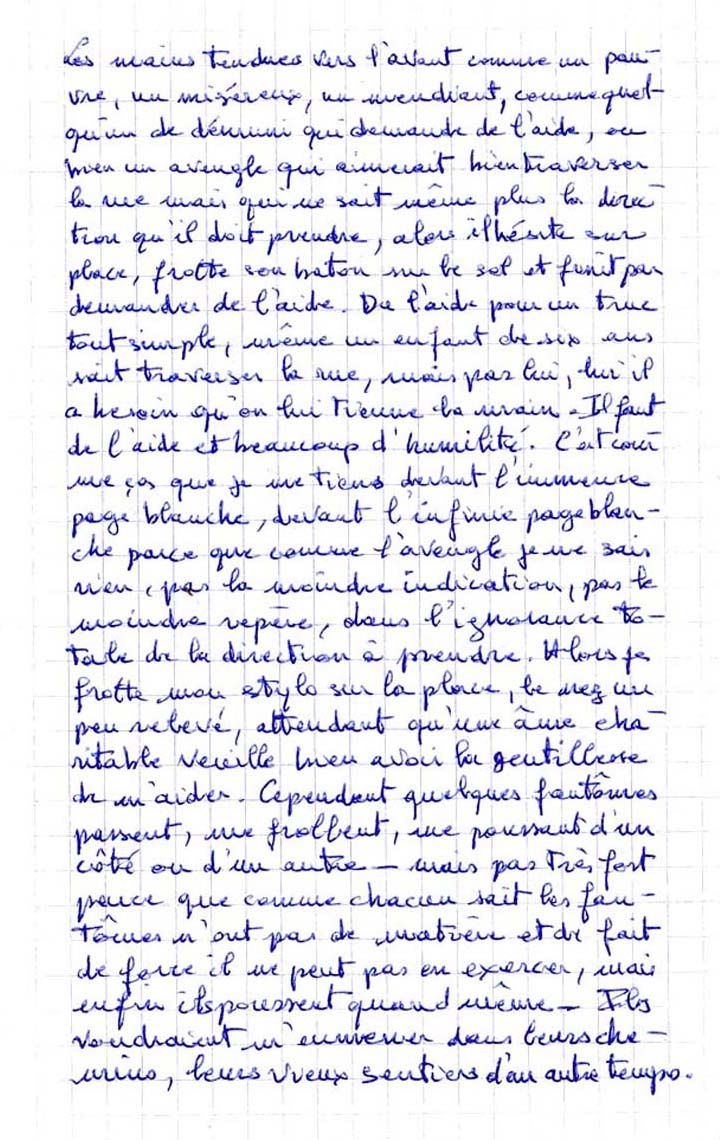 Les mains tendues vers l'avant comme un pau-
vre, un miséreux, un mendiant, comme quel-
qu'un de démuni qui demande de l'aide, ou
bien un aveugle qui aimerait bien traverser
la rue mais qui ne sait même plus la direc-
tion qu'il doit prendre, alors il hésite sur
place, frotte son baton sur le sol et finit par
demander de l'aide. De l'aide pour un truc
tout simple, même un enfant de six ans
sait traverser la rue, mais pas lui, lui il
a besoin qu'on lui tienne la main. Il faut
de l'aide et beaucoup d'humilité. C'est com-
me ça que je me tiens devant l'immense
page blanche, devant l'infinie page blan-
che parce que comme l'aveugle je ne sais
rien, pas la moindre indication, pas le
moindre repère, dans l'ignorance to-
tale de la direction à prendre. Alors je
frotte mon stylo sur la place, le nez un
peu relevé, attendant qu'une âme cha-
ritable veuille bien avoir la gentillesse
de m'aider. Cependant quelques fantômes
passent, me frôlent, me poussant d'un
côté ou d'un autre — mais pas très fort
parce que comme chacun sait les fan-
tômes n'ont pas de matière et de fait
de force il ne peut pas en exercer, mais
enfin ils poussent quand même — Ils
voudraient m'emmener dans leurs che-
mins, leurs vieux sentiers d'un autre temps.